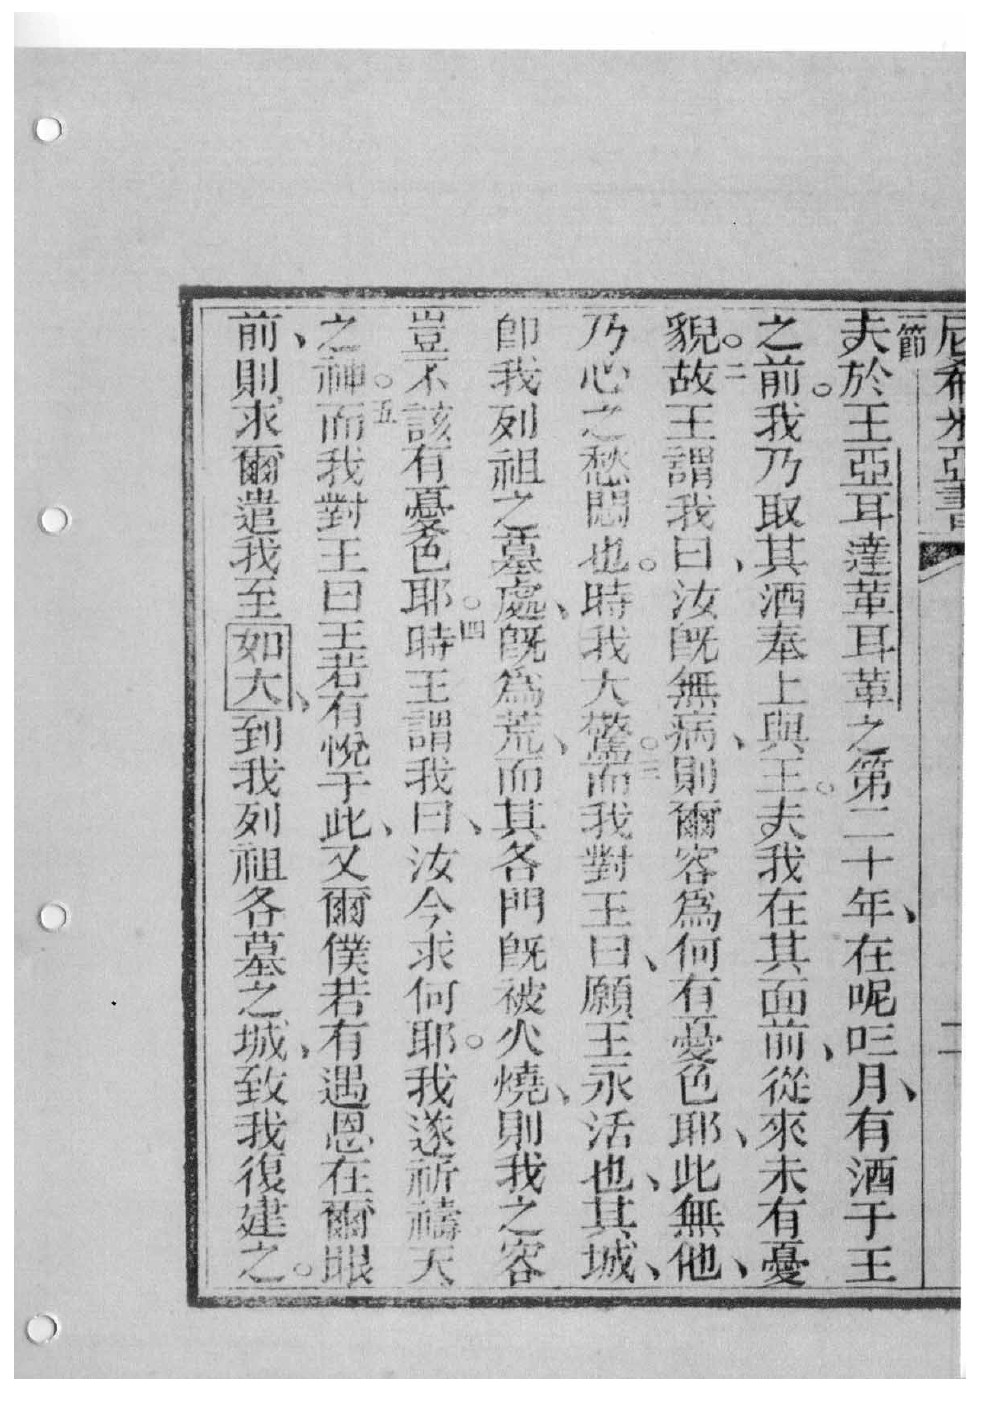 尼希米亞書 二
一節
夫於王亞耳達革耳革之第二十年、在呢㕰月、有酒于王
之前。我乃取其酒奉上與王。夫我在其面前、從來未有憂
貌。二故王謂我曰、汝旣無病、則爾容爲何有憂色耶、此無他、
乃心之愁悶也。時我大驚。三而我對王曰、願王永活也、其城、
卽我列祖之墓處、旣爲荒、而其各門旣被火燒、則我之容
豈不該有憂色耶。四時王謂我曰、汝今求何耶。我遂祈禱天
之神。五而我對王曰王若有悅于此、又爾僕若有遇恩在爾眼
前、則求爾遣我至如大、到我列祖各墓之城、致我復建之。